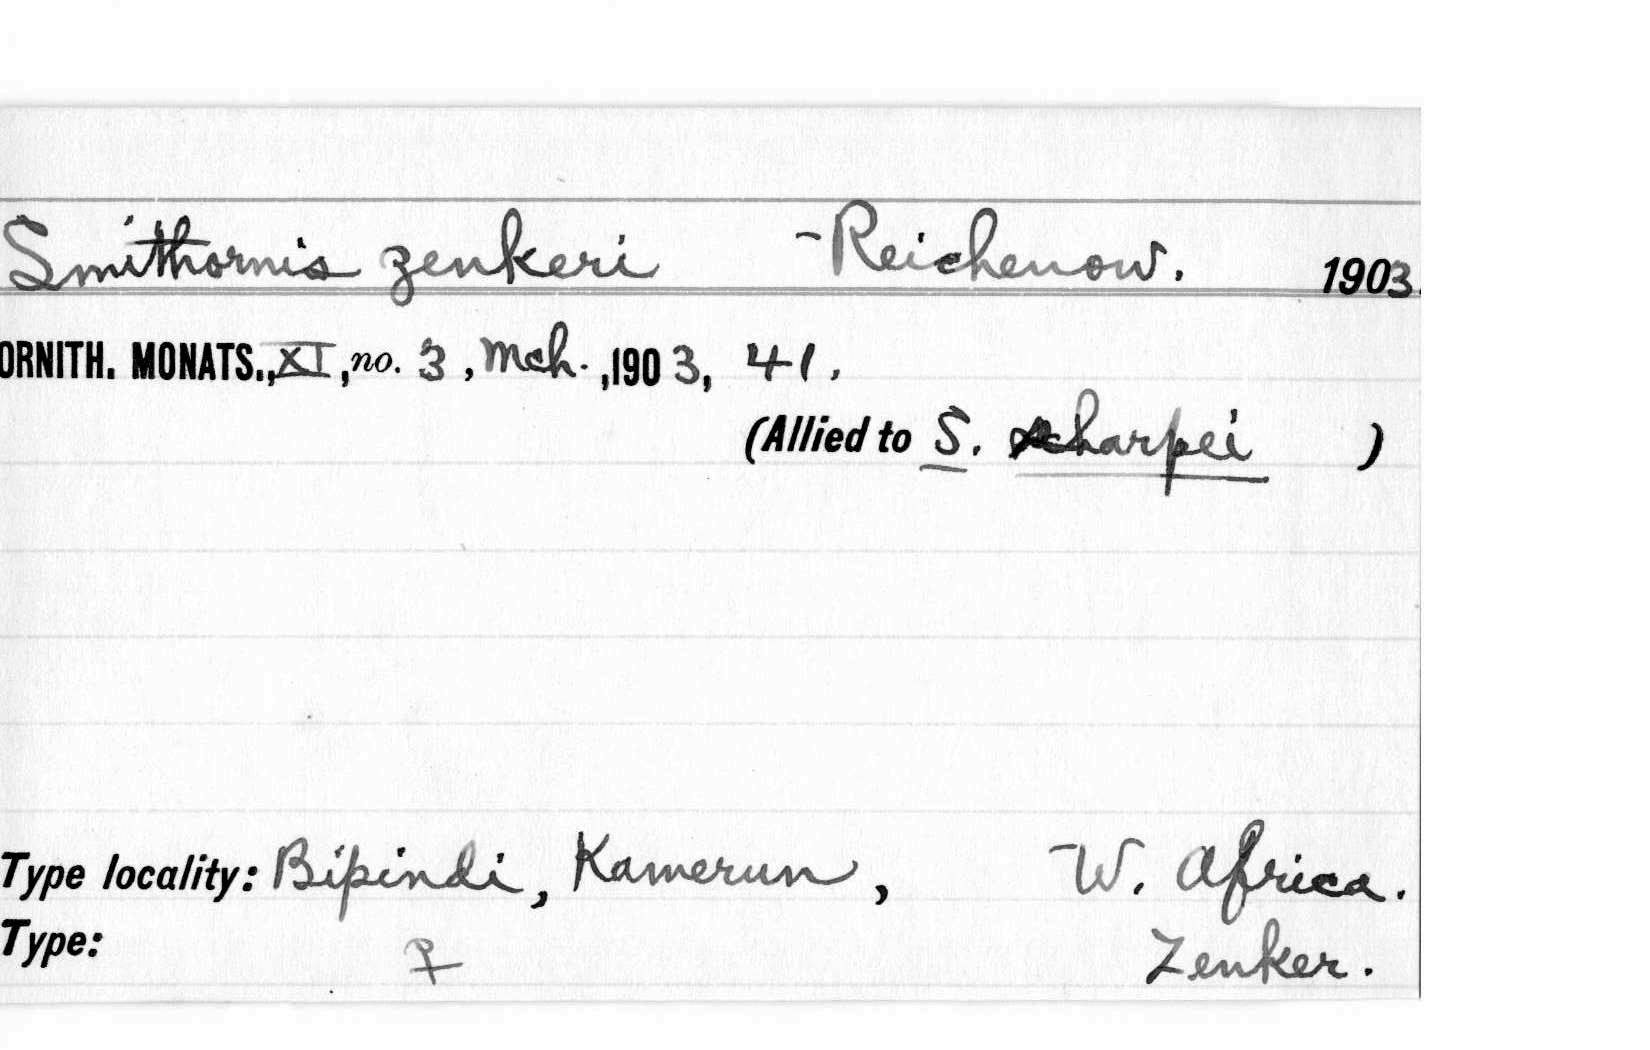 Smithornis zenkeri Reichenow. 1903.
ORNITH. MONATS., XI, no. 3, Mch., 1903, 41.
(Allied to S. sharpei )
Type locality: Bipindi, Kamerun, W. Africa.
Type: ♀ Zenker.